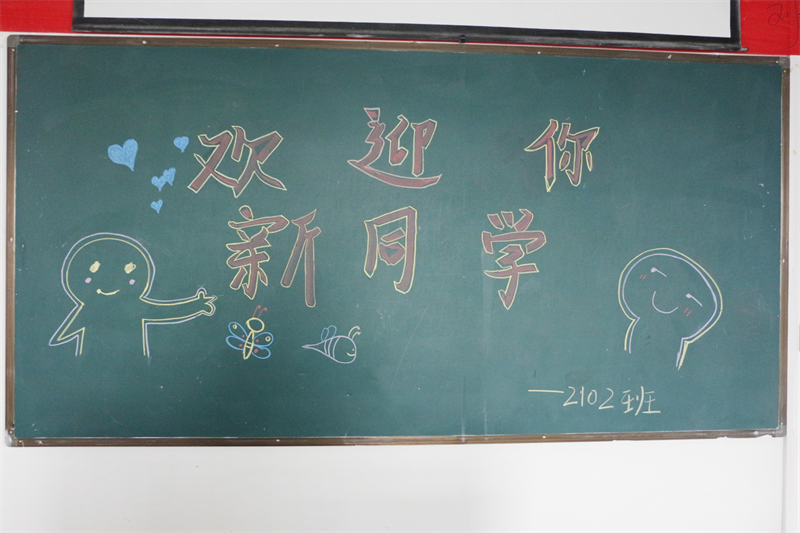 欢迎你
新同学
—2102班